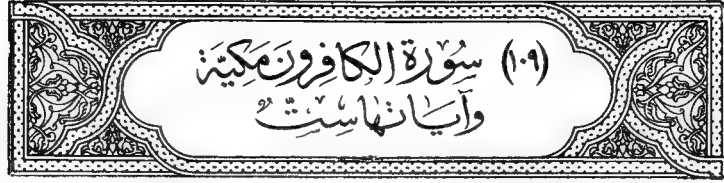 (١٠٩) سُورَةُ الكافِرُونَ مَكِيَّة
وَآيَاتهَا سِتٌّ